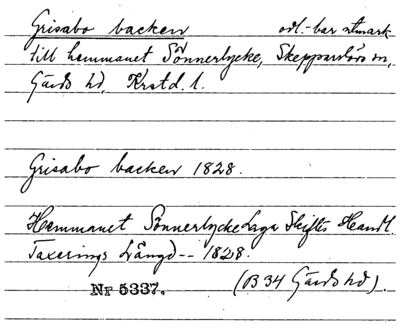 Grisabo backen odl.-bar utmark
till hemmanet Sönnerlycke, Skepparslövs sn,
Gärds hd, Krstd. l.
Grisabo backen 1828.
Hemmanet Sönnerlycke Laga Skiftes Handl.
Taxerings Längd -- 1828.
Nr 5337. (B 34 Gärds hd).